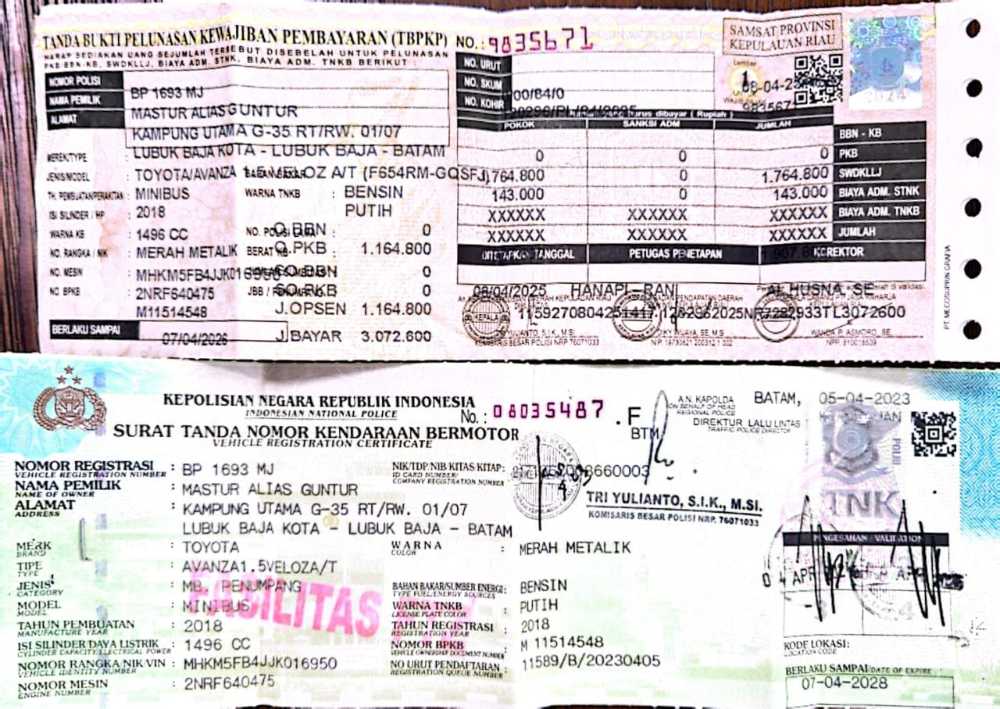 TANDA BUKTI PELUNASAN KEWAJIBAN PEMBAYARAN (TBPKP) NO.: 9835671
HARAP SEDIAKAN UANG SEJUMLAH TERSEBUT DISEBELAH UNTUK PELUNASAN
PKB BBN-KB, SWDKLLJ, BIAYA ADM. STNK, BIAYA ADM. TNKB BERIKUT :
SAMSAT PROVINSI
KEPULAUAN RIAU
Lembar
1
NO. URUT
NO. SKUM
NO. KOHIR
00/84/0
NOMOR POLISI : BP 1693 MJ
NAMA PEMILIK : MASTUR ALIAS GUNTUR
ALAMAT : KAMPUNG UTAMA G-35 RT/RW. 01/07
LUBUK BAJA KOTA - LUBUK BAJA - BATAM
MEREK/TYPE : TOYOTA/AVANZA 1.5 VELOZ A/T (F654RM-GQSFJ)
JENIS/MODEL : MINIBUS
WARNA TNKB : BENSIN
PUTIH
2018
ISI SILINDER / HP : 1496 CC
WARNA KB : MERAH METALIK
NO. RANGKA / NIK : MHKM5FB4JJK016950
NO. MESIN : 2NRF640475
NO. BPKB : M11514548
BERLAKU SAMPAI 07/04/2026
O.BBN : 0
O.PKB : 1.164.800
SO.BBN 0
SO.PKB 0
J.OPSEN : 1.164.800
J.BAYAR : 3.072.600
POKOK SANKSI ADM JUMLAH
0 0 0 BBN - KB
0 0 0 PKB
1.764.800 0 1.764.800 SWDKLLJ
143.000 0 143.000 BIAYA ADM. STNK
XXXXXX XXXXXX XXXXXX BIAYA ADM. TNKB
XXXXXX XXXXXX XXXXXX JUMLAH
DITETAPKAN TANGGAL PETUGAS PENETAPAN KOREKTOR
08/04/2025 HANAPI - RANI AL HUSNA, SE
KEPOLISIAN NEGARA REPUBLIK INDONESIA
INDONESIAN NATIONAL POLICE
No. : 08035487 .F
SURAT TANDA NOMOR KENDARAAN BERMOTOR
VEHICLE REGISTRATION CERTIFICATE
BTM
A.N. KAPOLDA
ON BEHALF OF HEAD
REGIONAL POLICE
BATAM, 05-04-2023
DIREKTUR LALU LINTAS
TRAFFIC POLICE DIRECTOR
TRI YULIANTO, S.I.K., M.SI.
KOMISARIS BESAR POLISI NRP. 76071033
NOMOR REGISTRASI : BP 1693 MJ
VEHICLE REGISTRATION NUMBER
NIK/TDP/NIB KITAS KITAP:
ID CARD NUMBER/
COMPANY REGISTRATION NUMBER
NAMA PEMILIK : MASTUR ALIAS GUNTUR
NAME OF OWNER
ALAMAT : KAMPUNG UTAMA G-35 RT/RW. 01/07
ADDRESS
LUBUK BAJA KOTA - LUBUK BAJA - BATAM
MERK : TOYOTA
BRAND
WARNA : MERAH METALIK
COLOR
TIPE : AVANZA1.5VELOZA/T
TYPE
JENIS : MB. PENUMPANG
CATEGORY
BAHAN BAKAR/SUMBER ENERGI : BENSIN
TYPE FUEL/ENERGY SOURCES
MODEL : MINIBUS
MODEL
WARNA TNKB : PUTIH
LICENSE PLATE COLOR
FASILITAS
TAHUN PEMBUATAN : 2018
MANUFACTURE YEAR
TAHUN REGISTRASI : 2018
REGISTRATION YEAR
ISI SILINDER DAYA LISTRIK : 1496 CC
CYLINDER CAPACITY/ELECTRICAL POWER
NOMOR BPKB : M 11514548
VEHICLE OWNERSHIP DOCUMENT NUMBER
NOMOR RANGKA NIK VIN : MHKM5FB4JJK016950
VEHICLE IDENTITY NUMBER
NO URUT PENDAFTARAN : 11589/B/20230405
REGISTRATION QUEUE NUMBER
NOMOR MESIN : 2NRF640475
ENGINE NUMBER
TNK
PENGESAHAN / VALIDATION
KODE LOKASI:
LOCATION CODE
BERLAKU SAMPAI/DATE OF EXPIRE
07-04-2028